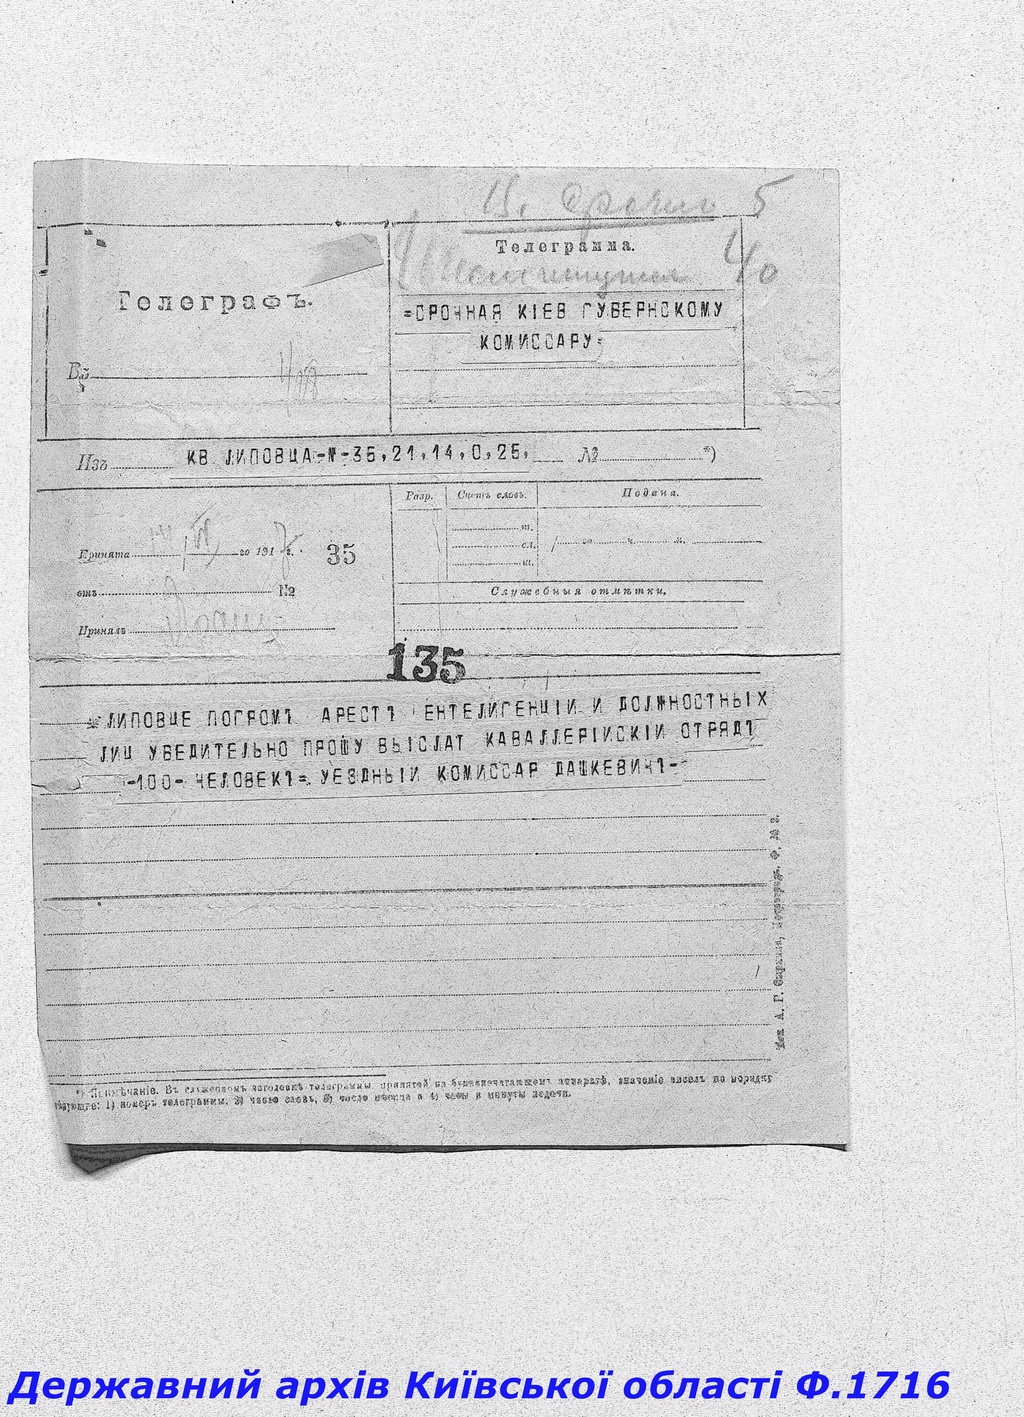 Срочно 5
Телеграмма.
40
Телеграфъ.
=СРОЧНАЯ КІЕВ ГУБЕРНСКОМУ
КОМИССАРУ=
Въ
Изъ КВ ЛИПОВЦА-N-35,21,14,0,25, № *)
Разр. Счетъ словъ. Подана.
ш.
сл. / — ч. м.
ш.
Принята 14/VI го 1917 г. 35
отъ № 
Служебныя отмѣтки.
Принялъ
135
ЛИПОВЦЕ ПОГРОМЪ АРЕСТЪ ЕНТЕЛИГЕНЦІИ И ДОЛЖНОСТНЫХ
ЛИЦ УБЕДИТЕЛЬНО ПРОШУ ВЫСЛАТ КАВАЛЛЕРІЙСКІЙ ОТРЯДЪ
-100- ЧЕЛОВЕКЪ= УЕЗДНЫЙ КОМИССАР ДАШКЕВИЧЪ-
А. Г. Сыркина, Петроградъ, Ф. № 2.
*) Примѣчаніе. Въ служебномъ заголовкѣ телеграммы, принятой на буквопечатающемъ аппаратѣ, значеніе чиселъ по порядку
слѣдующее: 1) номеръ телеграммы, 2) число словъ, 3) число мѣсяца и 4) часы и минуты подачи.
Державний архів Київської області Ф.1716